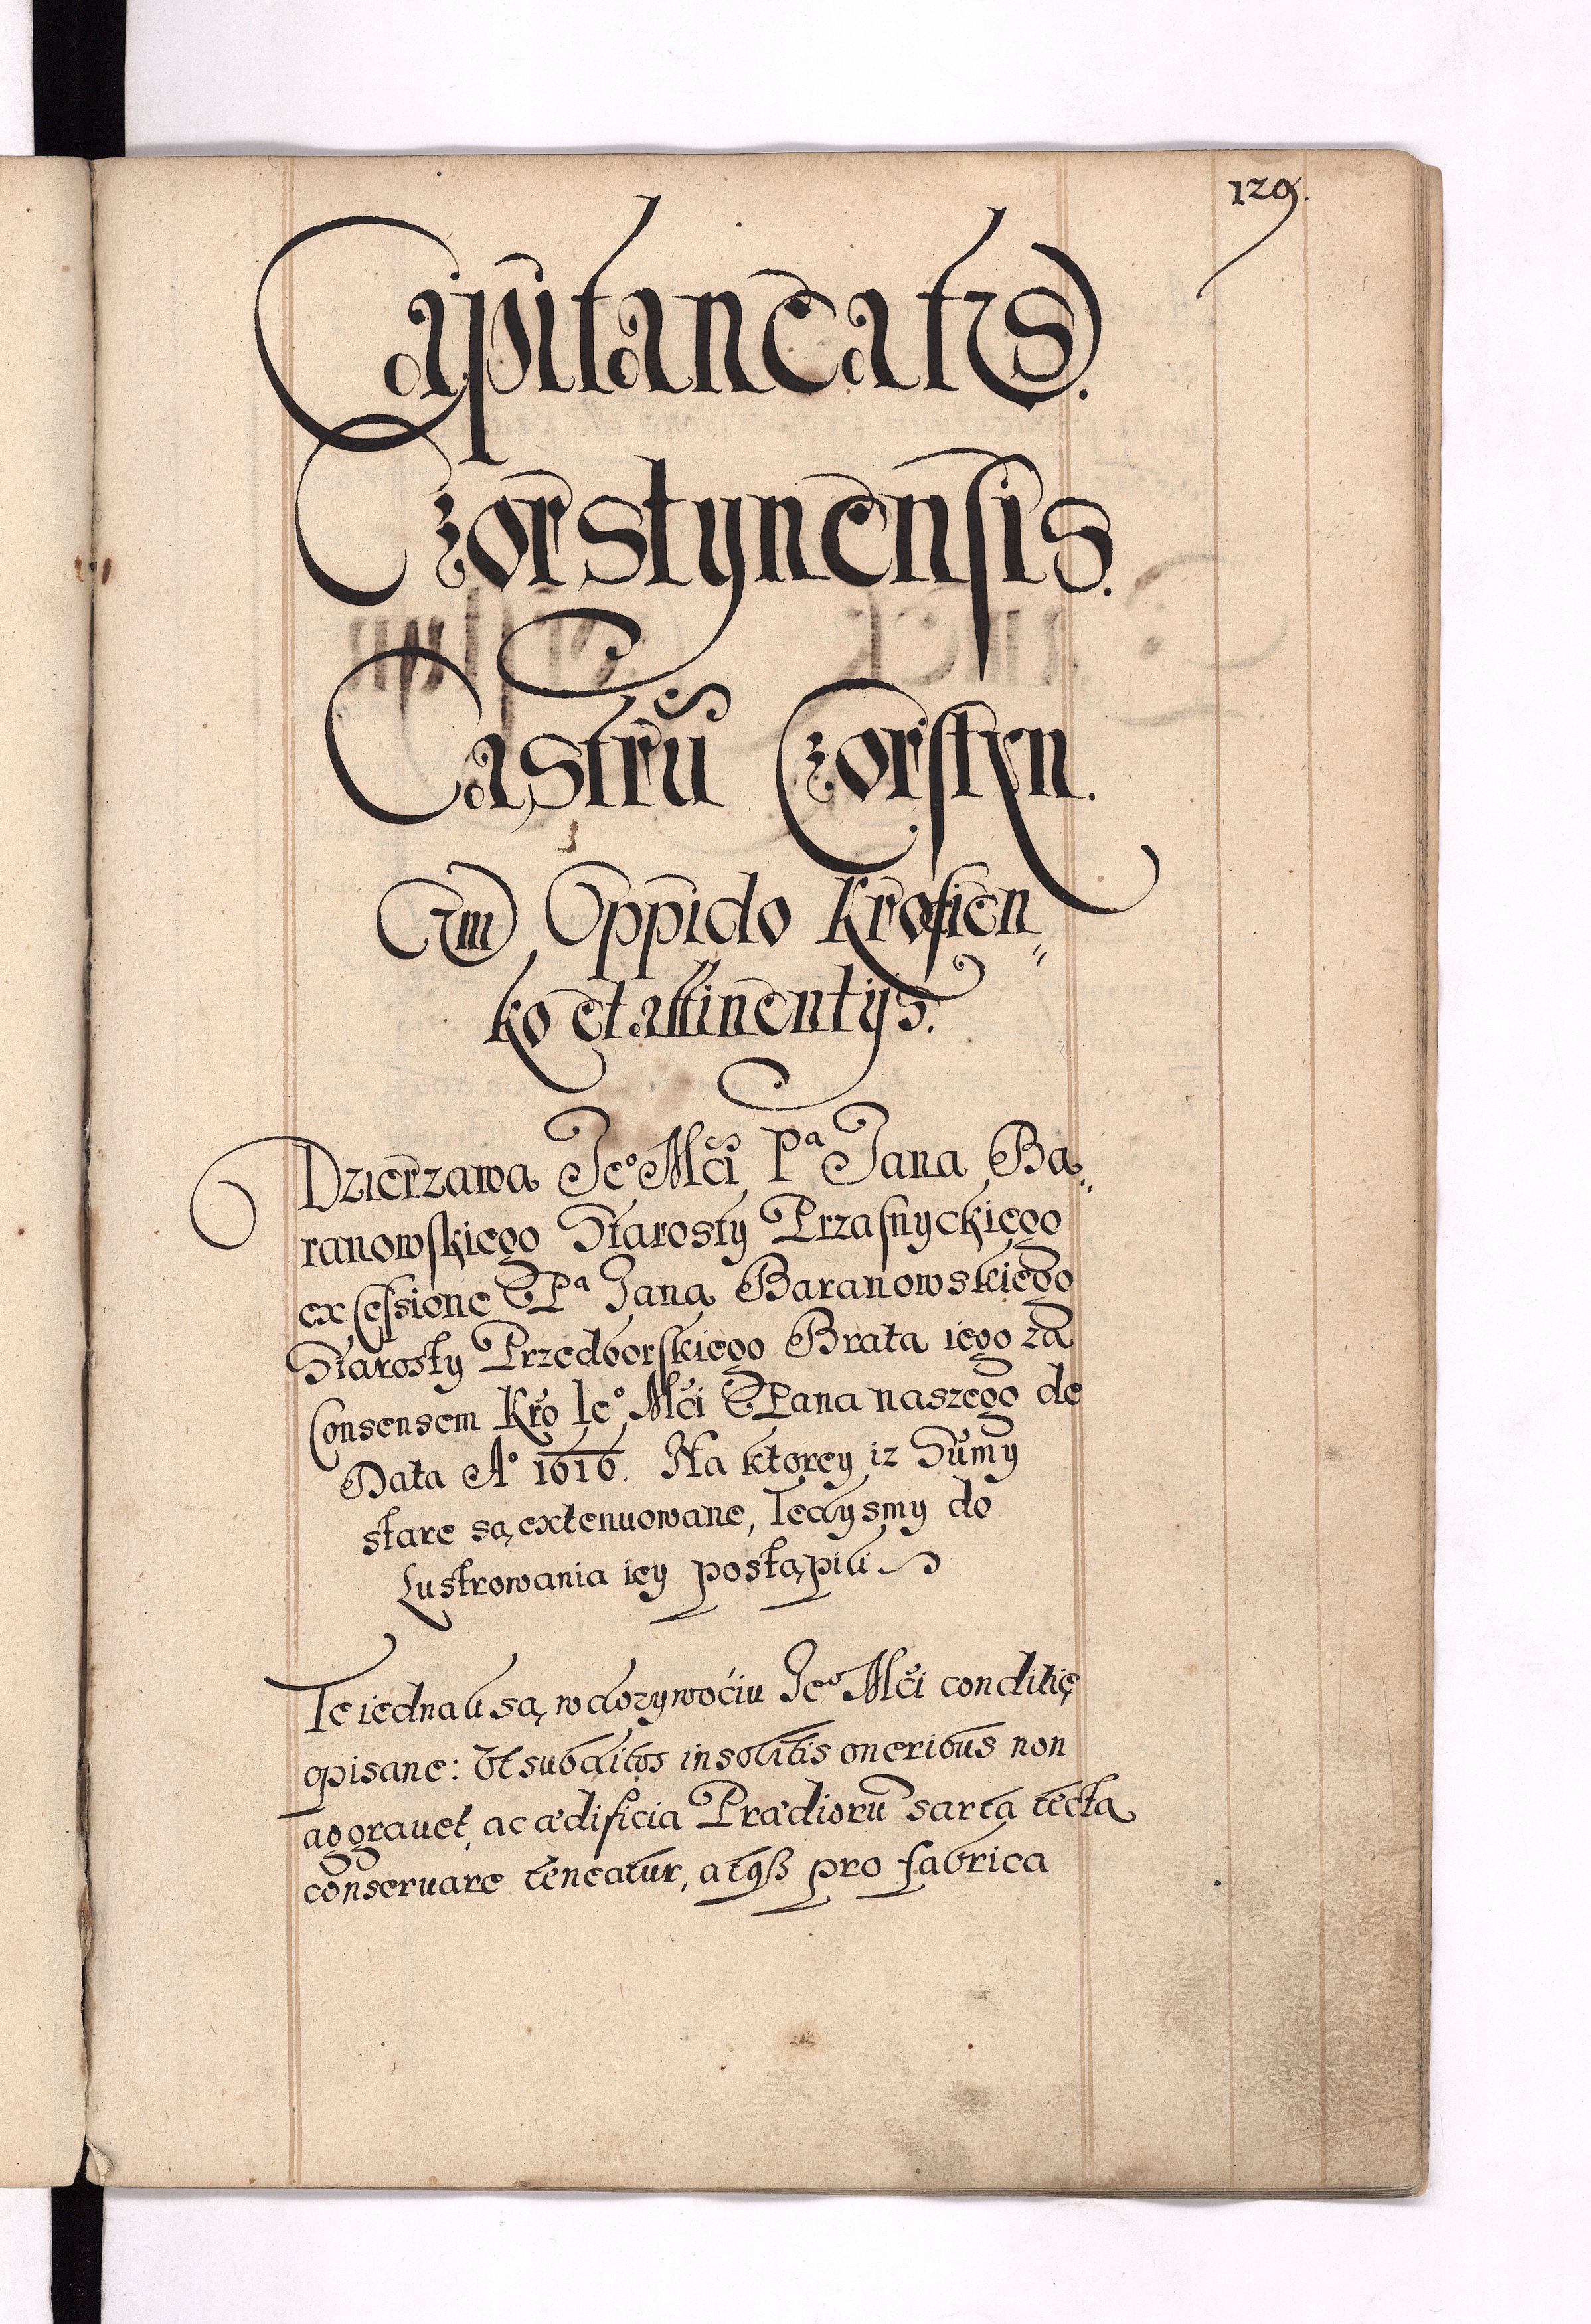 129.
Capitaneatus.
Czorstynensis.
Castrũ Czorstyn.
Cum Oppido Krosien„
ko et attinentijs.
Dzierzawa Jeº Mči Pª Jana Ba„
ranowskiego Starosty Przasnyckiego
ex Cessione Pª Jana Baranowskiego
Starosty Przedborskiego Brata iego za
Consensem Kro Ieº Mči Pana naszego de
Data Aº 1616. Na ktorey iz Sumy
stare są extenuowane, Tedysmy do
Lustrowania iey postąpili
Te iednak są w dozywociu Jeº Mči conditię
opisane: Ut subditos insolitis oneribus non
aggrauet, ac ædificia Prædiorũ sarta tecta
conseruare teneatur, atqß pro fabrica